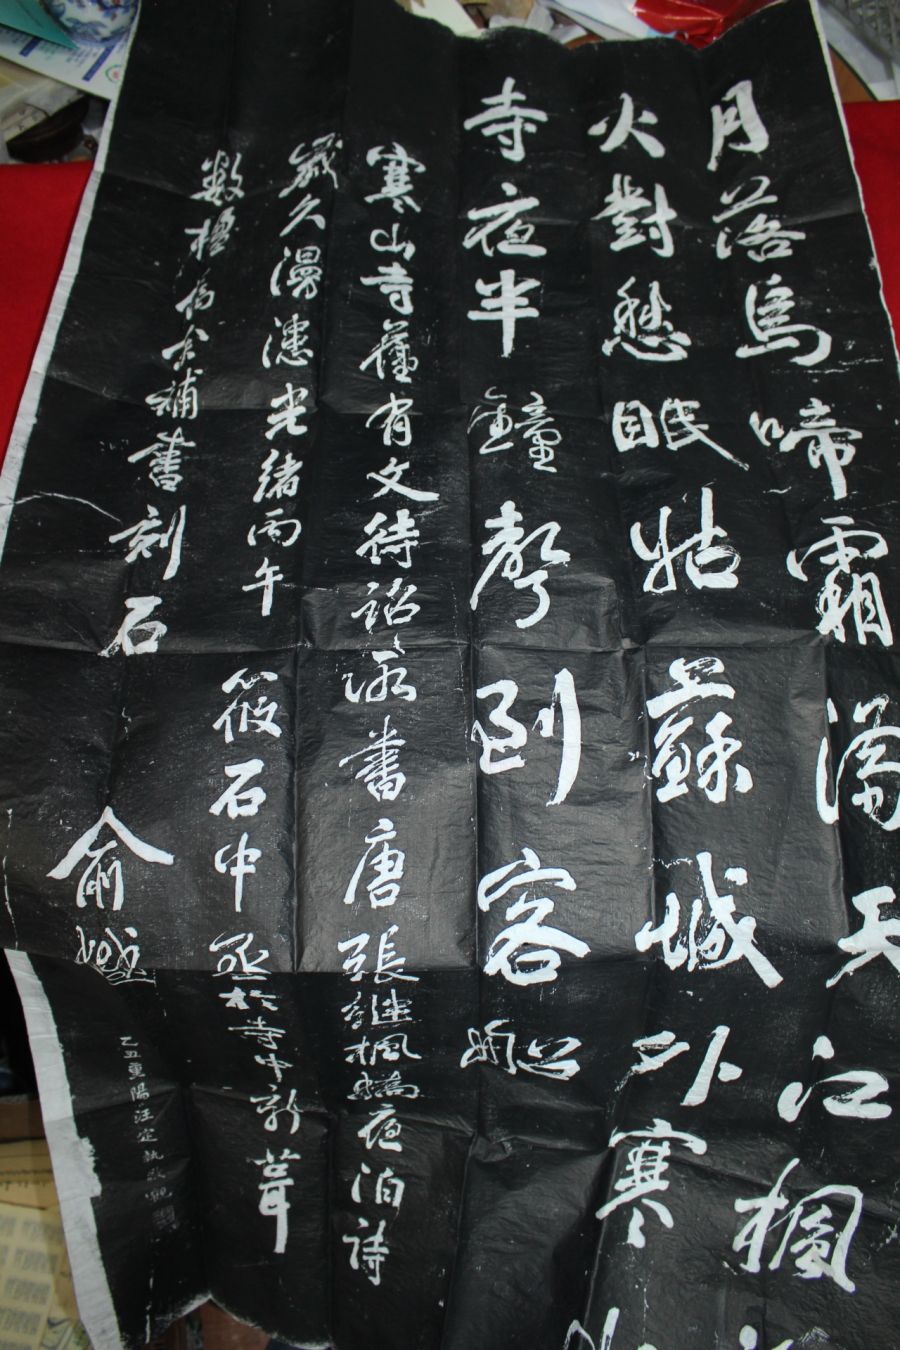 月落烏啼霜滿天江楓
火對愁眠姑蘇城外寒
寺夜半鐘聲到客船
寒山寺舊有文待詔所書唐張繼楓橋夜泊詩
歲久漫漶光緒丙午
筱石中丞於寺中新葺
數楹屬余補書刻石
俞樾
乙丑重陽汪定執敬觀